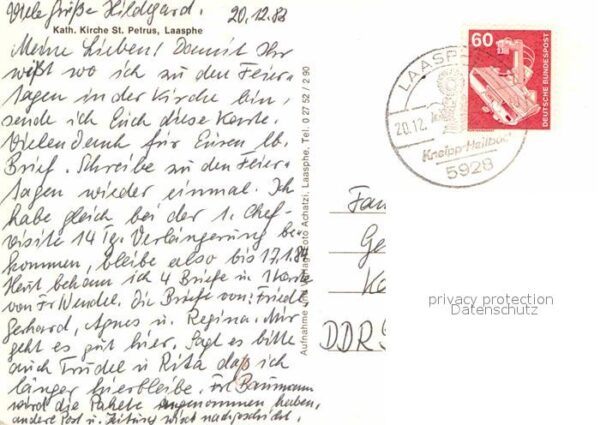 Viele Grüße Hildegard.
20.12.83
Kath. Kirche St. Petrus, Laasphe
Meine Lieben! Damit Ihr
wißt wo ich zu den Feier-
tagen in der Kirche bin,
sende ich Euch diese Karte.
Vielen Dank für Euren lb.
Brief. Schreibe zu den Feier-
tagen wieder einmal. Ich
habe gleich bei der 1. Chef-
visite 14 Tg. Verlängerung be-
kommen, bleibe also bis 17.1.84
Heut bekam ich 4 Briefe u. 1 Karte
von Fr. Wendel. Die Briefe von: Friedl
Gerhard, Agnes u. Regina. Mir
geht es gut hier. Sagt es bitte
auch Trudel u Rita daß ich
länger hierbleibe. Fr. Baumann
wird die Pakete angenommen haben,
andere Post u. Zeitung wird nachgeschickt.
Aufnahme und Verlag: Foto Achatzi, Laasphe, Tel. 0 27 52 / 2 90
LAASPHE
20.12.
Kneipp-Heilbad
5928
60
DEUTSCHE BUNDESPOST
Fam
Ge
Ko
DDR 9
privacy protection
Datenschutz